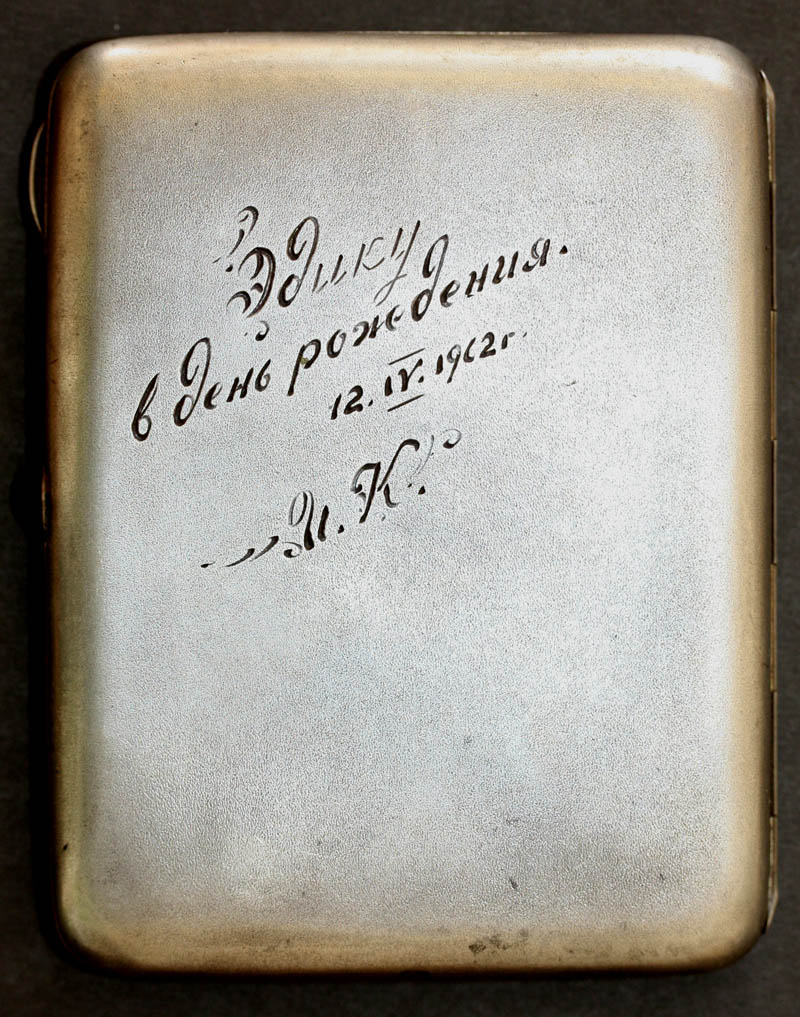 Эдику
в день рождения.
12. IV. 1962г.
И. К.